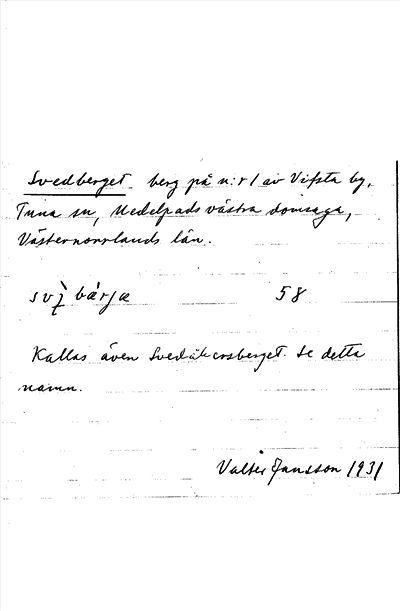 Svedberget berg på n:r 1 av Vifsta by,
Tuna sn, Medelpads västra domsaga,
Västernorrlands län.
bárja 58
Kallas även Svedåkersberget. Se detta
namn.
Valter Jansson 1931